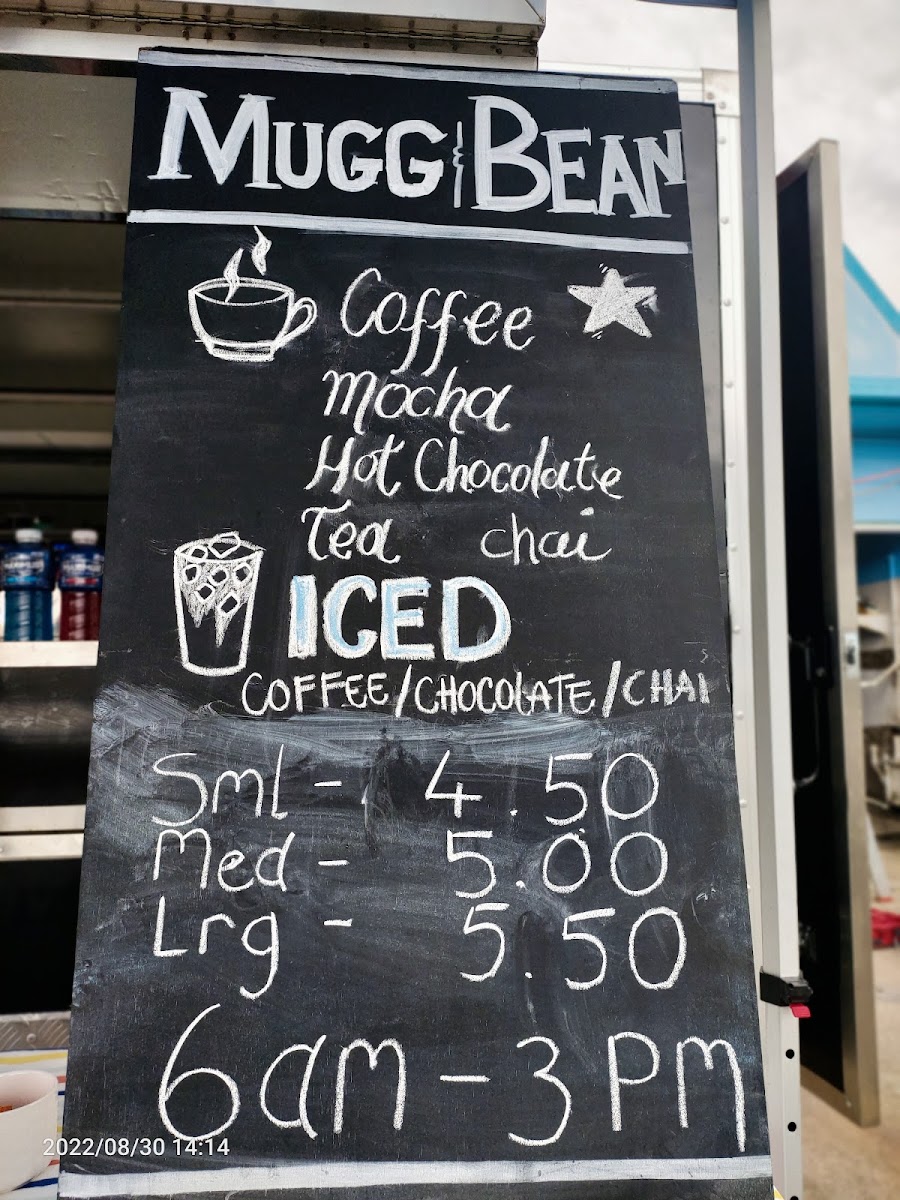 MUGG & BEAN
Coffee
Mocha
Hot Chocolate
Tea chai
ICED
COFFEE/CHOCOLATE/CHAI
Sml - 4.50
Med - 5.00
Lrg - 5.50
6am - 3pm
2022/08/30 14:14